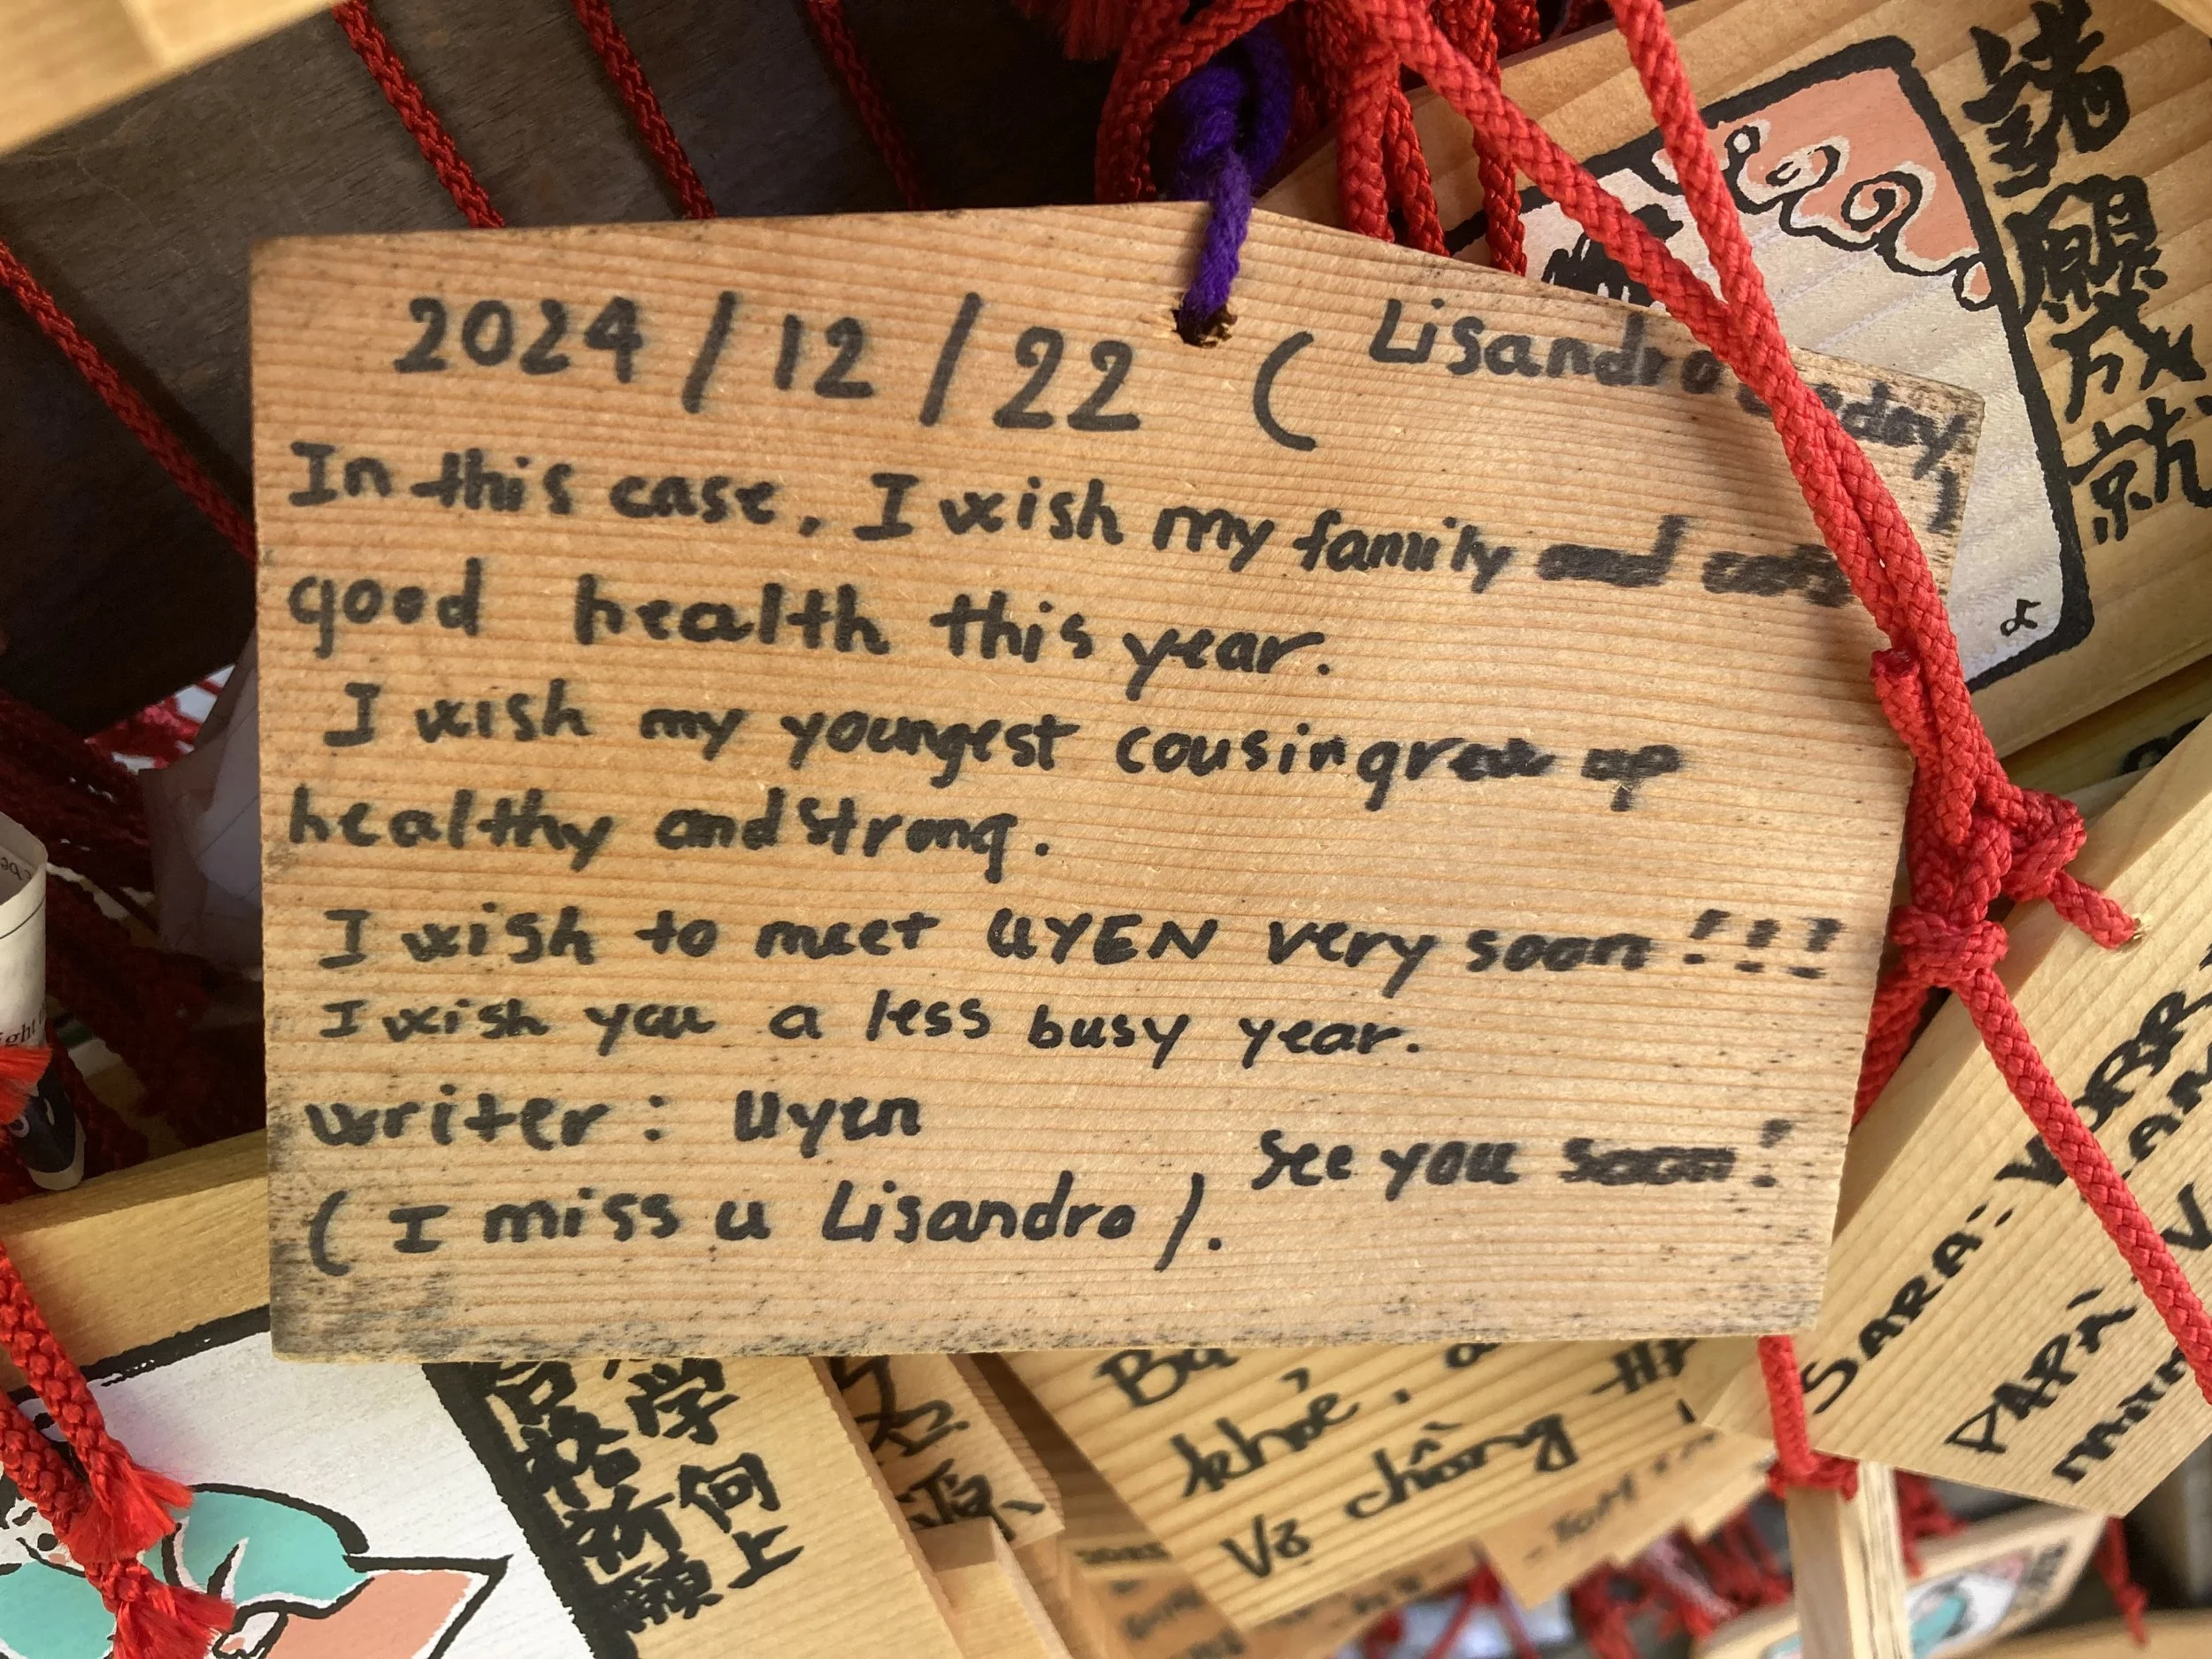 2024/12/22 ( Lisandro
In this case, I wish my family and
good health this year.
I wish my youngest cousin grow up
healthy and strong.
I wish to meet UYEN very soon!!!
I wish you a less busy year.
writer: Uyen
See you soon!
(I miss u Lisandro).
諸願成就
学何上
合格祈願
源
khỏe,
Vợ chồng
SARA:
PAPÀ